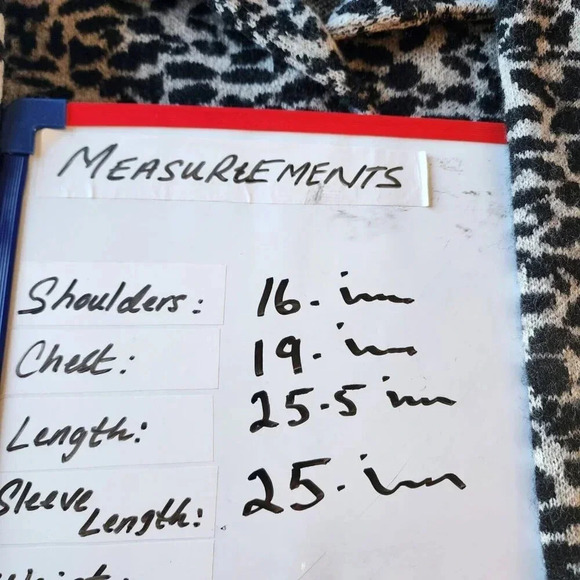 MEASUREMENTS
Shoulders: 16. in
Chest: 19. in
Length: 25.5 in
Sleeve Length: 25. in